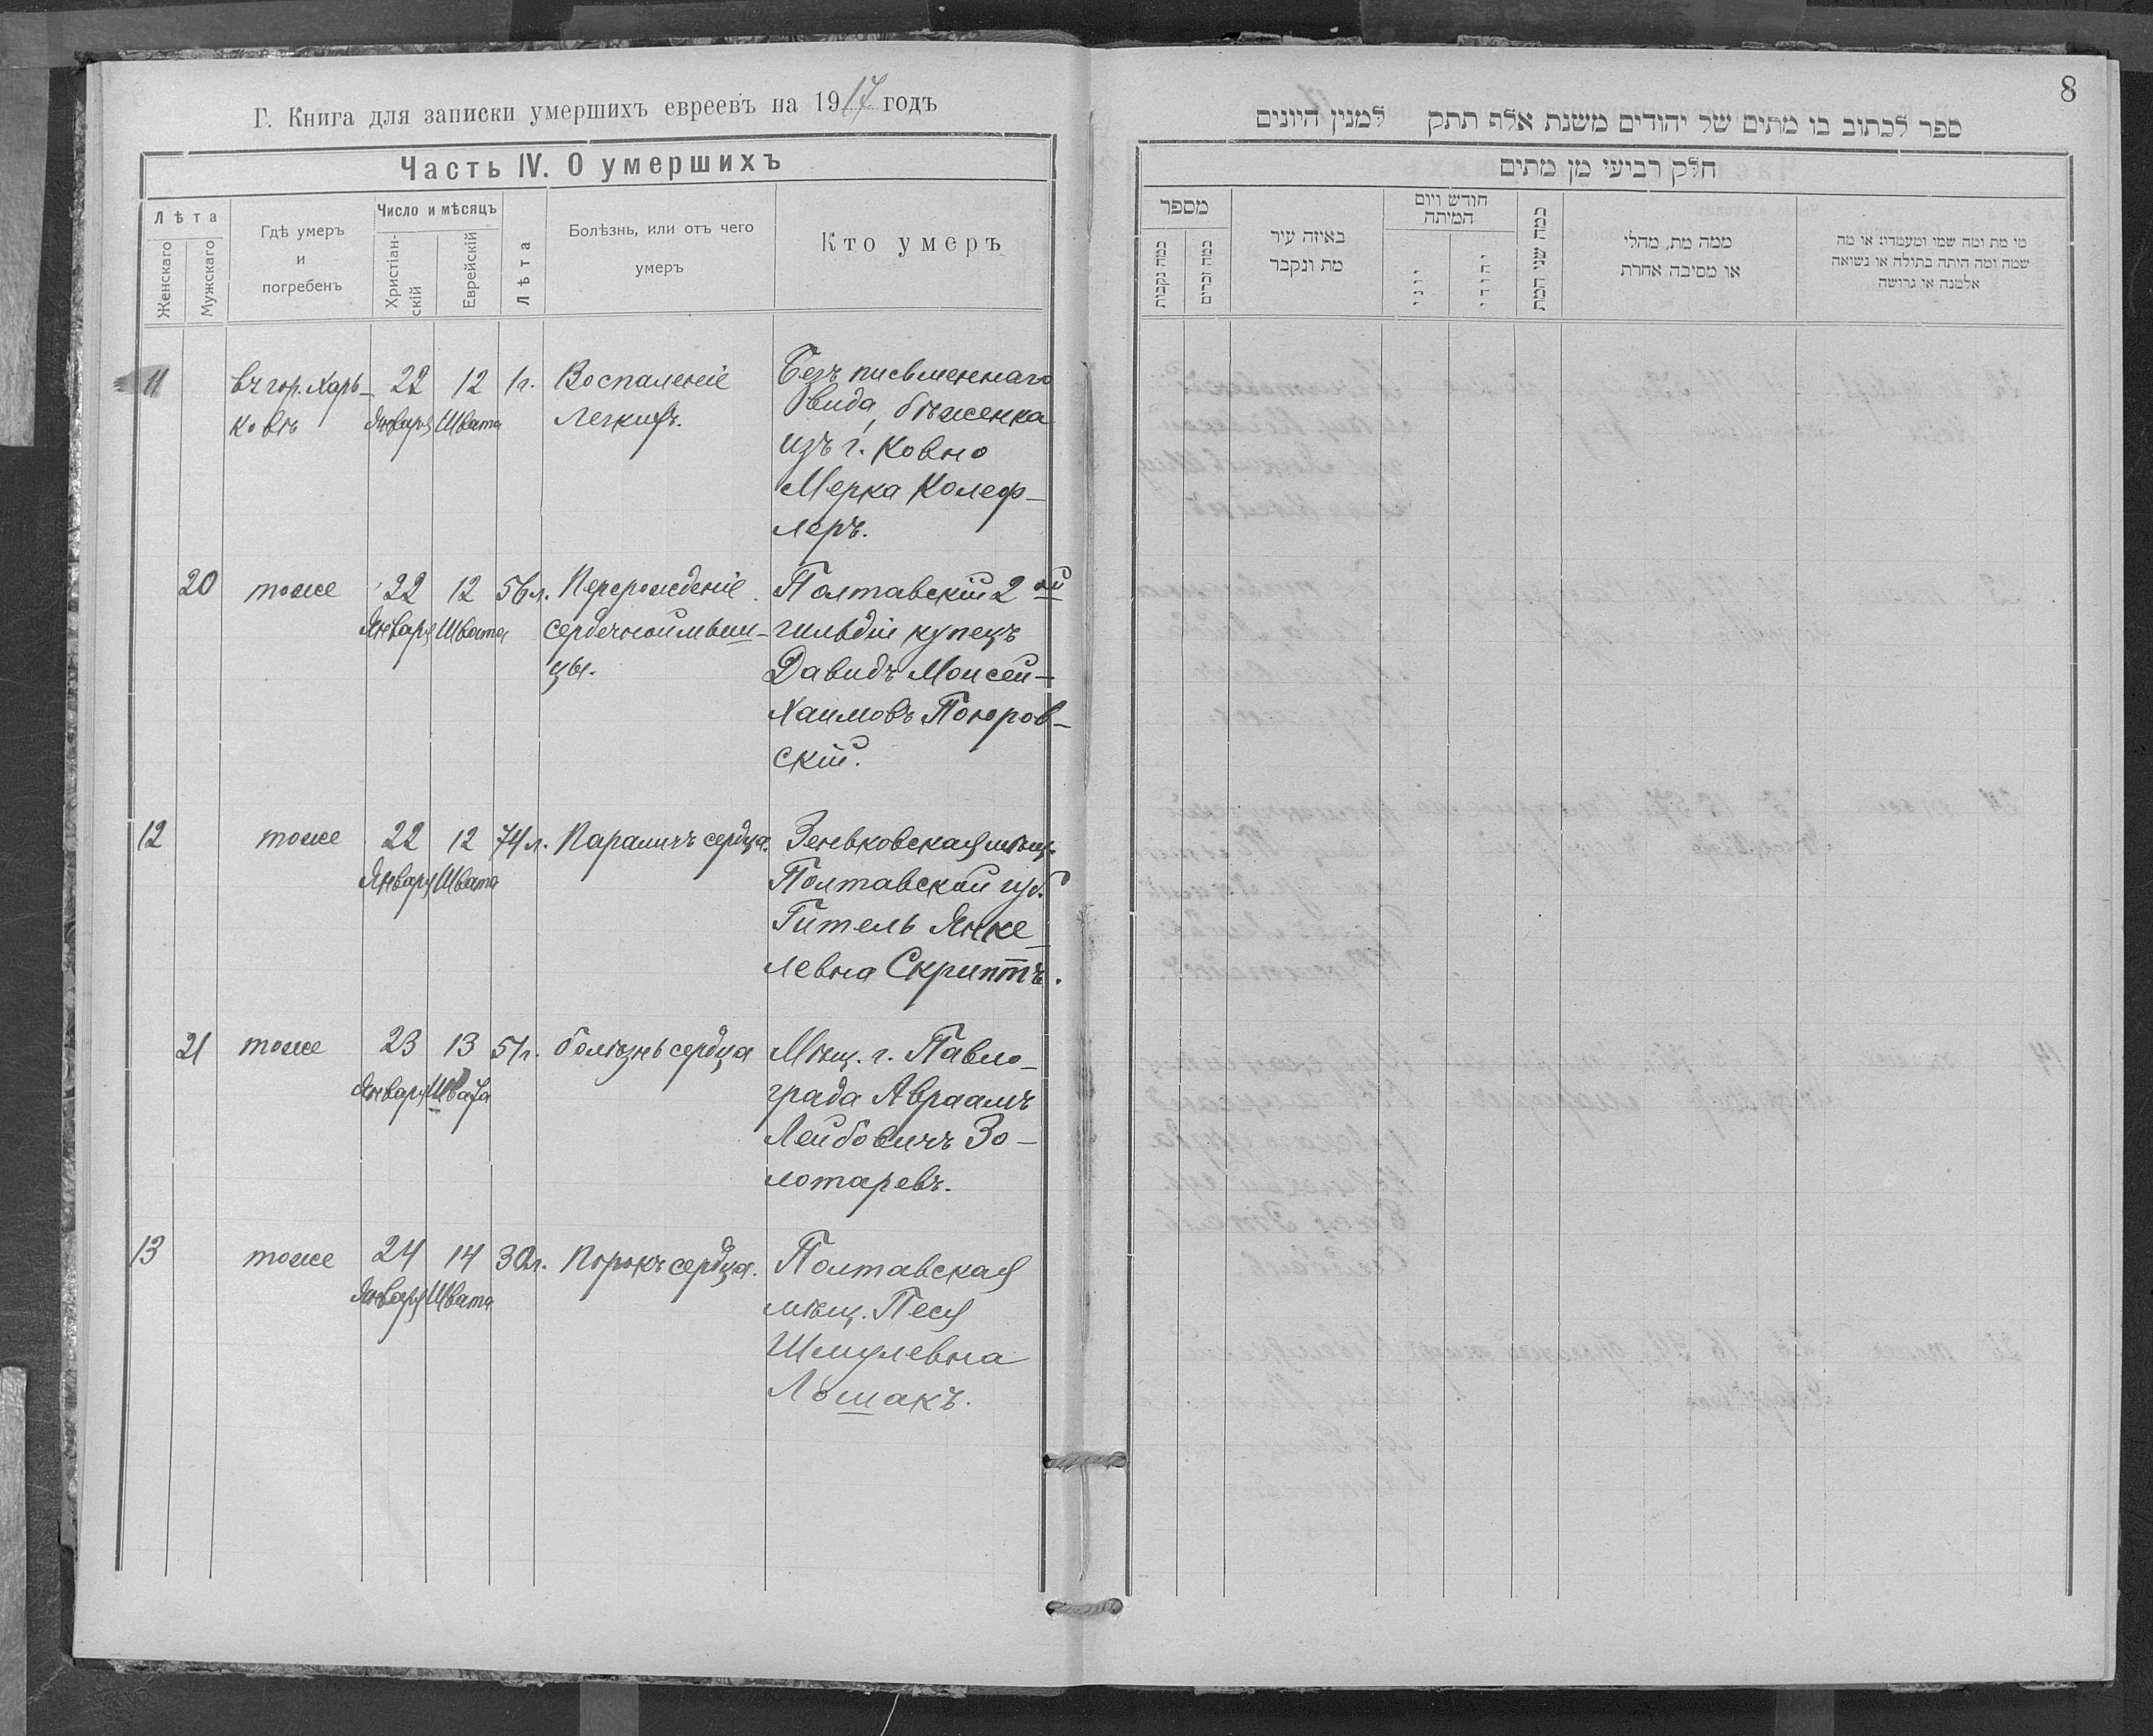 Г. Книга для записки умершихъ евреевъ на 1917 годъ
Часть IV. О умершихъ
Лѣта
Женскаго
Мужскаго
Гдѣ умеръ
и
погребенъ
Число и мѣсяцъ
Христіан-
скій
Еврейскій
Лѣта
Болѣзнь, или отъ чего
умеръ
Кто умеръ
11 въ гор. Харь- 22 12 1г. Воспаленіе Безъ письменнаго
ковѣ Января Швата Легкихъ. вида, бѣженка
изъ г. Ковно
Мерка Колеф-
леръ.
20 тоже 22 12 56л. Перерожденіе Полтавскій 2ой
Января Швата сердечной мыш- гильдіи купецъ
цы. Давидъ Моисей-
Хаимовъ
скій.
12 тоже 22 12 74л. Параличъ сердца. Зеньковская мѣщ.
Января Швата Полтавской губ.
Гитель Янке-
левна Скриптъ.
21 тоже 23 13 51г. болѣзнь сердца Мѣщ. г. Павло-
Января Швата града Авраамъ
Лейбовичъ Зо-
лотаревъ.
13 тоже 24 14 30л. Порокъ сердца. Полтавская
Января Швата мѣщ. Песя
Шмулевна
Лошакъ.
8
ספר לכתוב בו מתים של יהודים משנת אלף תתק למנין היונים
חלק רביעי מן מתים
מספר
כמה נקבות
כמה זכרים
באיזה עיר
מת ונקבר
חודש ויום
המיתה
יוני
יהודי
כמה שני המת
ממה מת, מהלי
או מסיבה אחרת
מי מת ומה שמו ומעמדו: או מה
שמה ומה היתה בתולה או נשואה
אלמנה או גרושה